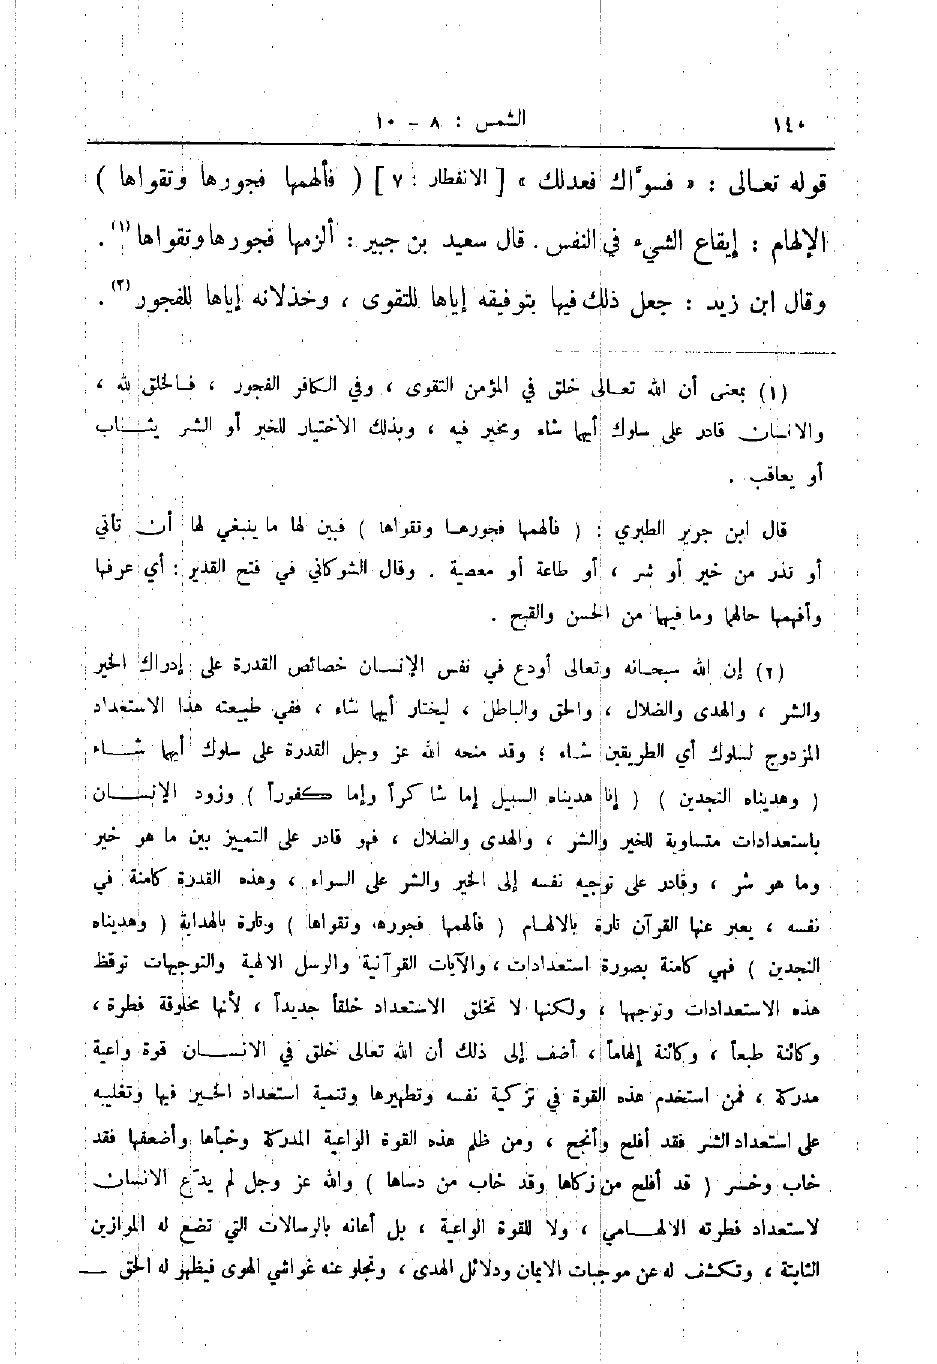 ١٤٠
الشمس : ٨ - ١٠
قوله تعالى : « فسوَّاك فعدلك » [ الانفطار : ٧ ] ( فألهمها فجورها وتقواها )
الإلهام : إيقاع الشيء في النفس . قال سعيد بن جبير : ألزمها فجورها وتقواها (١) .
وقال ابن زيد : جعل ذلك فيها بتوفيقه إياها للتقوى ، وخذلانه إياها للفجور (٢) .
(١) بمعنى أن الله تعالى خلق في المؤمن التقوى ، وفي الكافر الفجور ، فالخلق لله ،
والانسان قادر على سلوك أيها شاء ومخير فيه ، وبذلك الاختيار للخير أو الشر يثاب
أو يعاقب .
قال ابن جرير الطبري : ( فألهمها فجورها وتقواها ) فبين لها ما ينبغي لها أن تأتي
أو تذر من خير أو شر ، أو طاعة أو معصية . وقال الشوكاني في فتح القدير : أي عرفها
وأفهمها حالها وما فيها من الحسن والقبح .
(٢) إن الله سبحانه وتعالى أودع في نفس الإنسان خصائص القدرة على إدراك الخير
والشر ، والهدى والضلال ، والحق والباطل ، ليختار أيها شاء ، ففي طبيعته هذا الاستعداد
المزدوج لسلوك أي الطريقين شاء ؛ وقد منحه الله عز وجل القدرة على سلوك أيها شاء
( وهديناه النجدين ) ( إنا هديناه السبيل إما شاكراً وإما كفوراً ) وزود الإنسان
باستعدادات متساوية للخير والشر ، والهدى والضلال ، فهو قادر على التمييز بين ما هو خير
وما هو شر ، وقادر على توجيه نفسه إلى الخير والشر على السواء ، وهذه القدرة كامنة في
نفسه ، يعبر عنها القرآن تارة بالالهام ( فألهمها فجورها وتقواها ) وتارة بالهداية ( وهديناه
النجدين ) فهي كامنة بصورة استعدادات ، والآيات القرآنية والرسل الالهية والتوجيهات توقظ
هذه الاستعدادات وتوجهها ، ولكنها لا تخلق الاستعداد خلقاً جديداً ، لأنها مخلوقة فطرة ،
وكائنة طبعاً ، وكائنة إلهاماً ، أضف إلى ذلك أن الله تعالى خلق في الانسان قوة واعية
مدركة ، فمن استخدم هذه القوة في تزكية نفسه وتطهيرها وتنمية استعداد الخير فيها وتغليبه
على استعداد الشر فقد أفلح وأنجح ، ومن ظلم هذه القوة الواعية المدركة وخبأها وأضعفها فقد
خاب وخسر ( قد أفلح من زكاها وقد خاب من دساها ) والله عز وجل لم يدَع الانسان
لاستعداد فطرته الالهامي ، ولا للقوة الواعية ، بل أعانه بالرسالات التي تضع له الموازين
الثابتة ، وتكشف له عن موجبات الايمان ودلائل الهدى ، وتجلو عنه غواشي الهوى فيظهر له الحق —